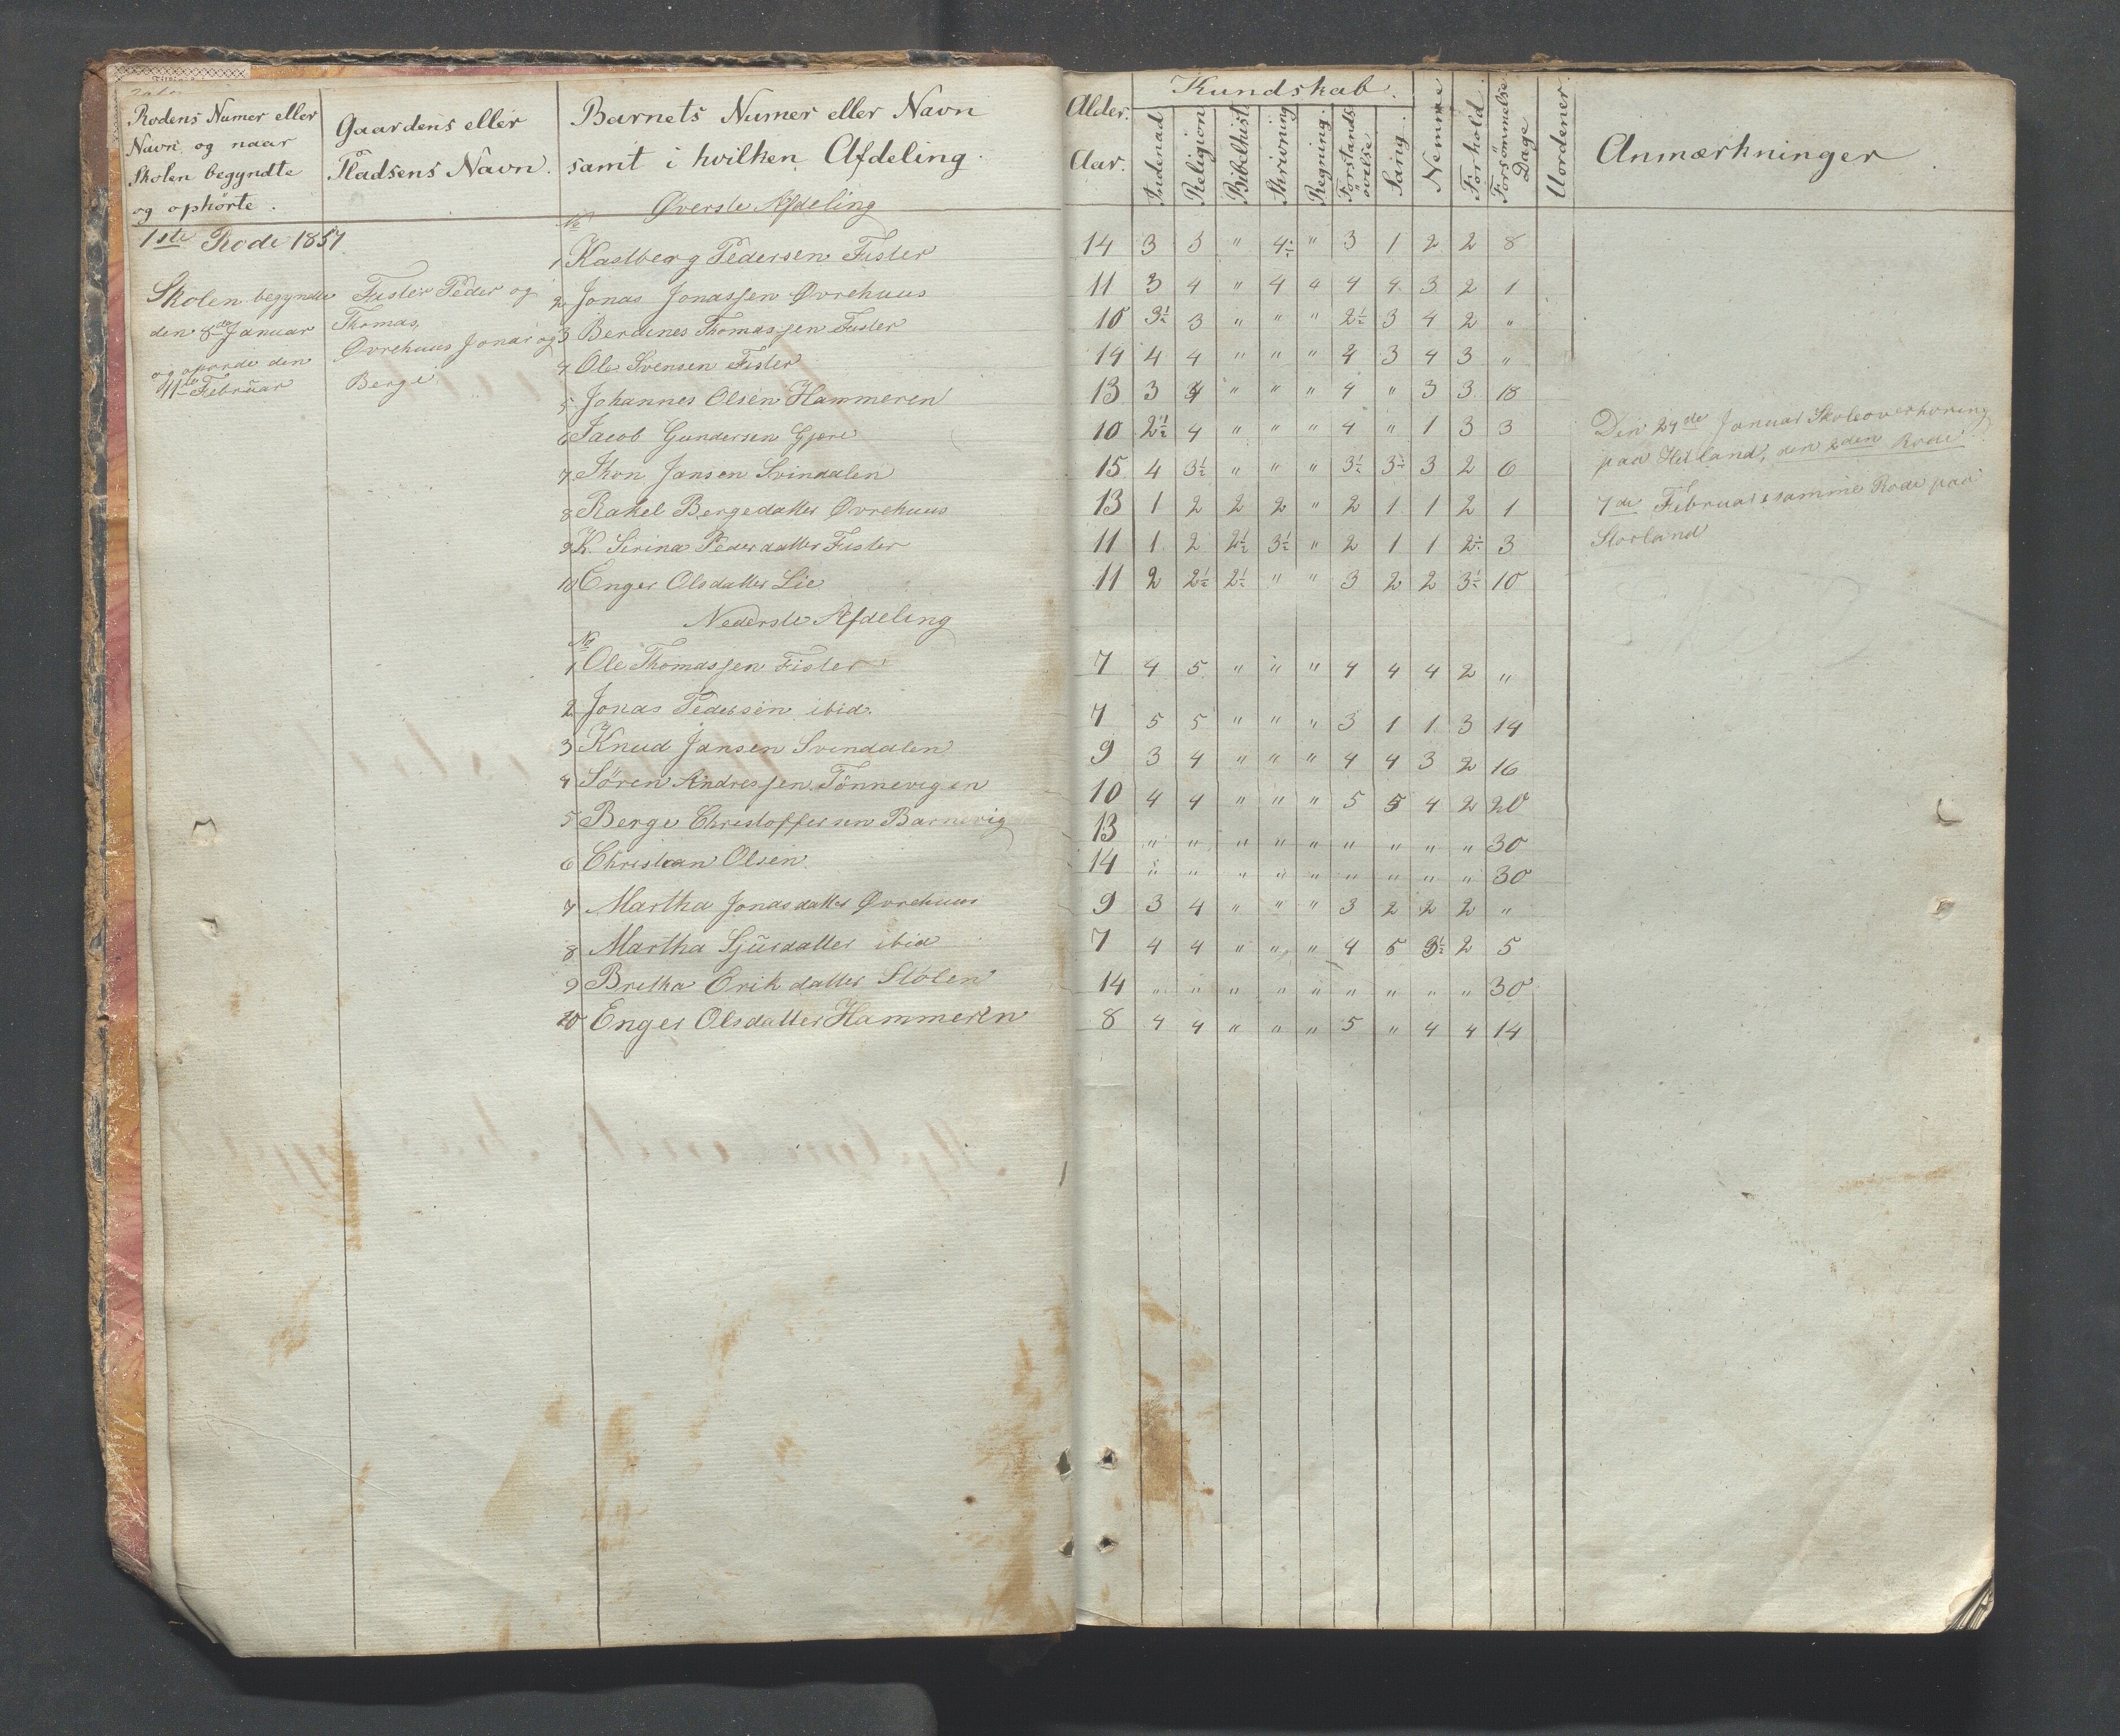 Rodens Numer eller
Navn og naar
Skolen begyndte
og ophörte.
Gaardens eller
Pladsens Navn.
Barnets Numer eller Navn
samt i hvilken Afdeling.
Alder. Aar.
Kundskab.
Indenad Religion Bibelhist. Skrivning Regning. Forstands övelse Sang. Nemme Forhold Forsömmelse Dage Uordener Anmærkninger
Øverste Afdeling
1ste Rode 1857
Skolen begyndte
den 8de Januar
og den
11te Februar
Fister Peder og
Thomas,
Øvrehuus Jonas og
Berge
No
1 Kastberg Pedersen Fister 14 3 3 " 4÷ " 3 1 2 2 8
2 Jonas Jonassen Øvrehuus 11 3 4 " 4 4 4 4 3 2 1
3 Berdines Thomassen Fister 10 3½ 3 " " " 2½ 3 4 2 "
4 Ole Svensen Fister 14 4 4 " " " 4 3 4 3 "
5 Johannes Olsen Hammeren 13 3 4 " " " 4 " 3 3 18
6 Jacob Gundersen Gjere 10 2½ 4 " " " 4 " 1 3 3
7 Jansen Svindalen 15 4 3½ " " " 3½ 3½ 3 2 6
8 Rakel Bergedatter Øvrehuus 13 1 2 2 2 " 2 1 1 2 1
9 K. Serina Pedersdatter Fister 11 1 2 2½ 3½ " 2 1 1 2÷ 3
10 Enger Olsdatter Lie 11 2 2½ 2½ " " 3 2 2 3½ 10
Den 29de Januar Skoleoverhöring
paa Hetland, den 2den Rode
7de Februar samme Rode paa
Storland
Nederste Afdeling
No
1 Ole Thomassen Fister 7 4 5 " " " 4 4 4 2 "
2 Jonas Pedersen ibid. 7 5 5 " " " 3 1 1 3 14
3 Knud Jansen Svindalen 9 3 4 " " " 4 4 3 2 16
4 Sören Andressen Tönnevigen 10 4 4 " " " 5 5 4 2 20
5 Berge Christoffersen Barnevig 13 " " " " " " " " " 30
6 Christian Olsen 14 " " " " " " " " " 30
7 Martha Jonasdatter Øvrehuus 9 3 4 " " " 3 2 2 2 "
8 Martha Sjursdatter ibid 7 4 4 " " " 4 5 3½ 2 5
9 Bretha Erikdatter Stölen 14 " " " " " " " " " 30
10 Enger Olsdatter Hammeren 8 4 4 " " " 5 " 4 4 14